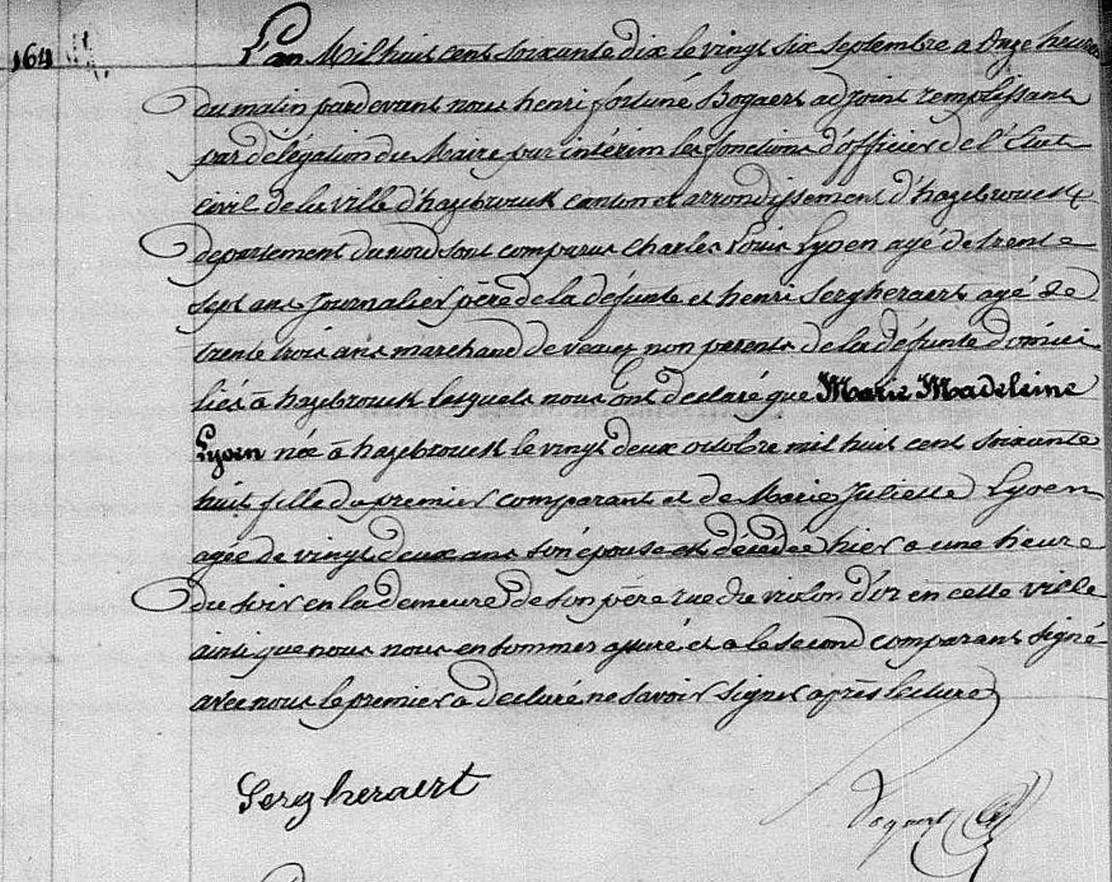 164
L'an Mil huit cent soixante dix le vingt six septembre a Onze heures
du matin pardevant nous henri fortuné Bogaert adjoint remplissant
par délégation du Maire par intérim les fonctions d'officier de l'État
civil de la ville d'hazebrouck canton et arrondissement d'hazebrouck
departement du nord sont comparus Charles Louis Lyoen agé de trente
sept ans Journalier père de la défunte et henri Sergheraert agé de
trente trois ans marchand de veaux non parents de la défunte domici
liés à hazebrouck lesquels nous ont declaré que Marie Madeleine
Lyoen née à hazebrouck le vingt deux octobre mil huit cent soixante
huit fille du premier comparant et de Marie Juliette Lyoen
agée de vingt deux ans son épouse est décédée hier a une heure
du soir en la demeure de son père rue du violon d'or en cette ville
ainsi que nous nous en sommes assuré et a le second comparant signé
avec nous le premier a declaré ne savoir signer après lecture
Sergheraert
Bogaert